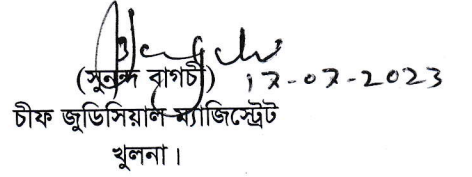 (সুনন্দ বাগচী) 17-07-2023
চীফ জুডিসিয়াল ম্যাজিস্ট্রেট
খুলনা।